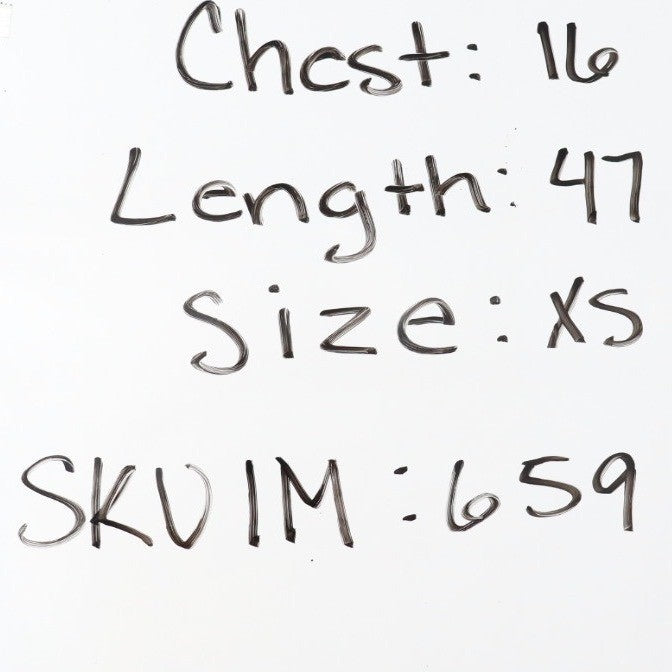 Chest: 16
Length: 47
Size: XS
SKU IM: 659